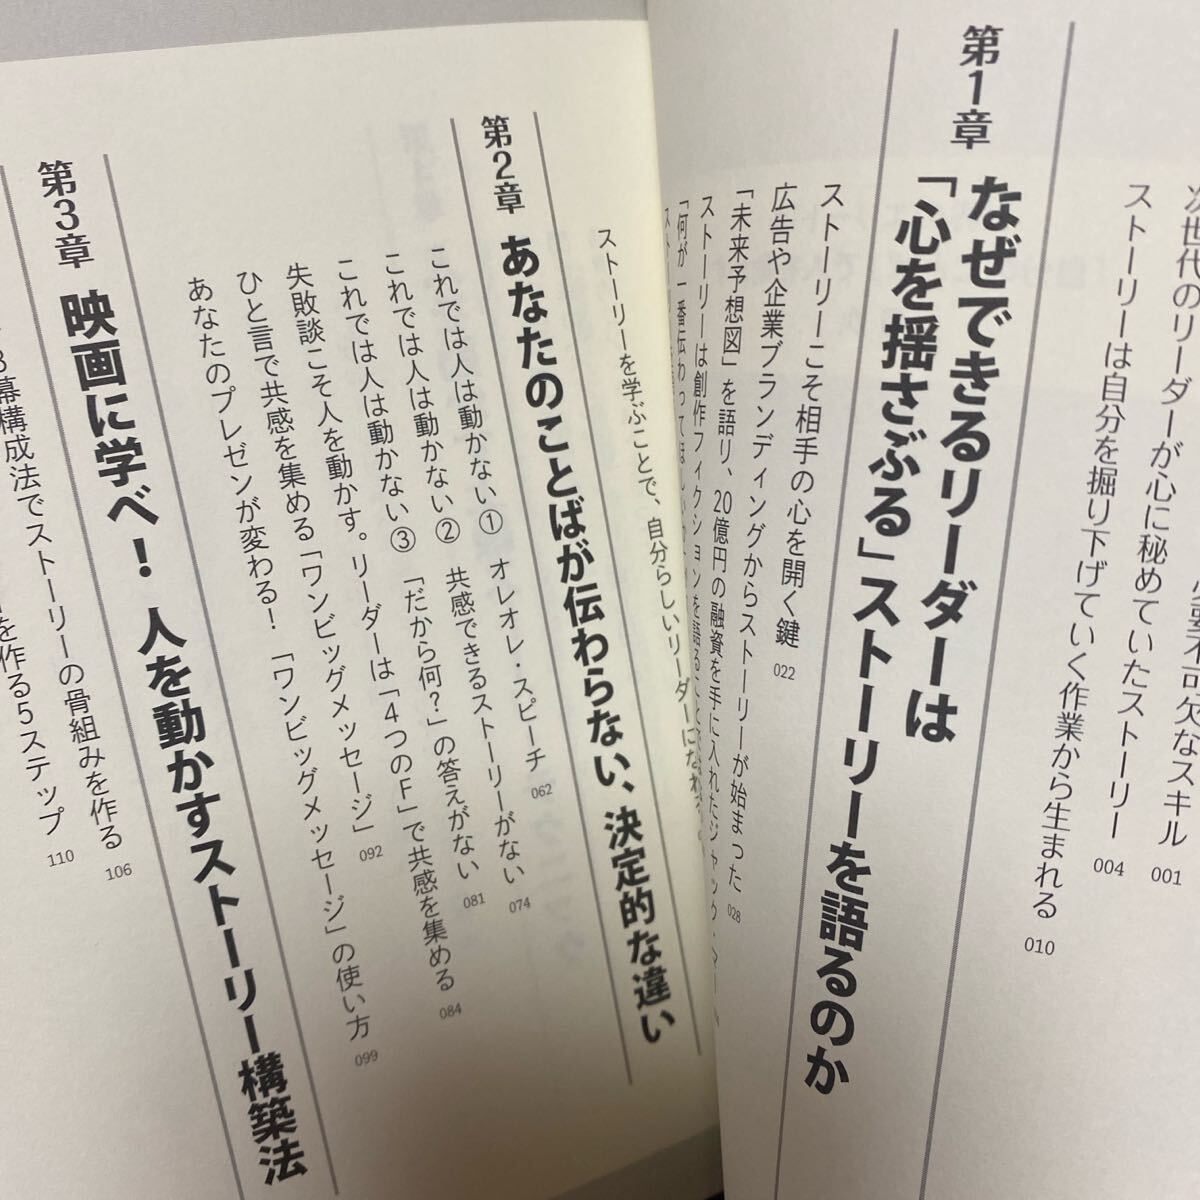 要不可欠なスキル 001
次世代のリーダーが心に秘めていたストーリー 004
ストーリーは自分を掘り下げていく作業から生まれる 010
第1章 なぜできるリーダーは
「心を揺さぶる」ストーリーを語るのか
ストーリーこそ相手の心を開く鍵 022
広告や企業ブランディングからストーリーが始まった 028
「未来予想図」を語り、20億円の融資を手に入れたジャック・マー
ストーリーは創作フィクションを語ることで
「何が一番伝わってほしいか
ストーリー
ストーリーを学ぶことで、自分らしいリーダーになれる。
第2章 あなたのことばが伝わらない、決定的な違い
これでは人は動かない① オレオレ・スピーチ 062
これでは人は動かない② 共感できるストーリーがない 074
これでは人は動かない③ 「だから何?」の答えがない 081
失敗談こそ人を動かす。リーダーは「4つのF」で共感を集める 084
ひと言で共感を集める「ワンビッグメッセージ」 092
あなたのプレゼンが変わる! 「ワンビッグメッセージ」の使い方 099
第3章 映画に学べ! 人を動かすストーリー構築法
3幕構成法でストーリーの骨組みを作る 106
を作る5ステップ 110